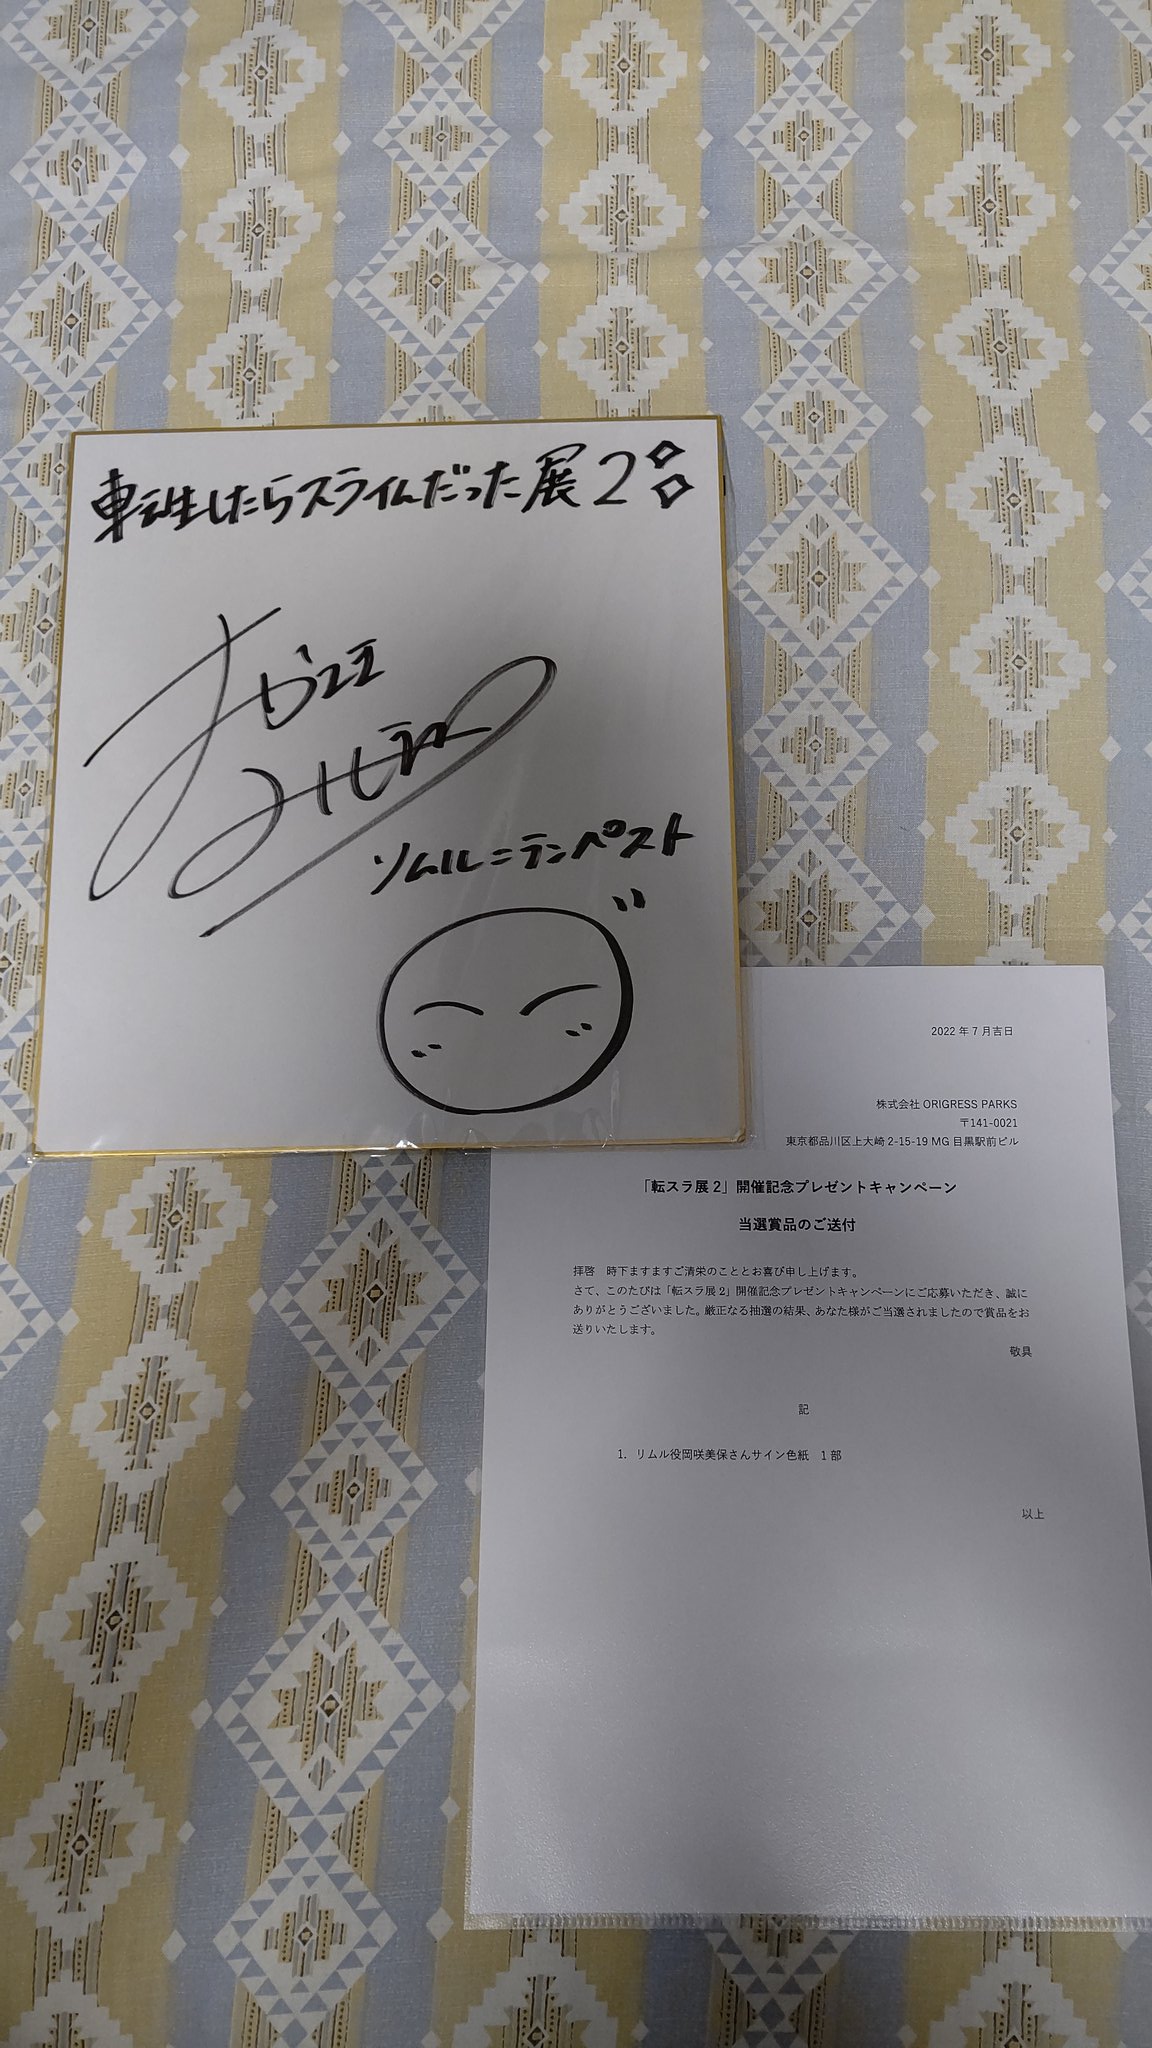 転生したらスライムだった展2
リムル=テンペスト
2022年7月吉日
株式会社 ORIGRESS PARKS
〒141-0021
東京都品川区上大崎 2-15-19 MG 目黒駅前ビル
「転スラ展 2」開催記念プレゼントキャンペーン
当選賞品のご送付
拝啓　時下ますますご清栄のこととお喜び申し上げます。
さて、このたびは「転スラ展 2」開催記念プレゼントキャンペーンにご応募いただき、誠に
ありがとうございました。厳正なる抽選の結果、あなた様がご当選されましたので賞品をお
送りいたします。
敬具
記
1. リムル役岡咲美保さんサイン色紙　1部
以上